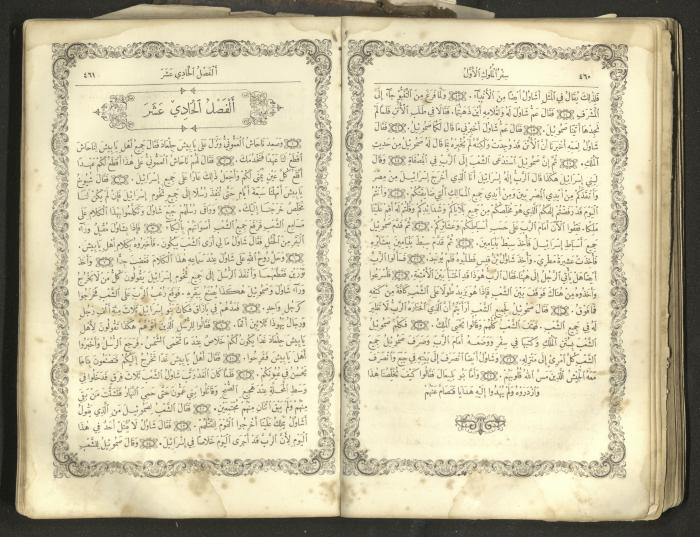 سفر الملوك الأول
٤٦٠
فلذلك يقال في المثل أشاول أيضا من الأنبياء. ولما فرغ من التنبؤ جاء إلى
المشرف فقال عم شاول له ولغلامه أين ذهبتما. فقالا في طلب الأتن فلما لم
نجدها أتينا صموئيل. فقال عم شاول أخبرني ما قال لكما صموئيل. فقال
شاول لعمه أخبرنا أن الأتن قد وجدت ولكنه لم يخبره بما قال صموئيل من حديث
الملك. ثم إن صموئيل استدعى الشعب إلى الرب في المصفاة وقال
لبني إسرائيل هكذا قال الرب إله إسرائيل أنا الذي أخرج إسرائيل من مصر
وأنقذكم من أيدي المصريين ومن أيدي جميع الممالك التي ضايقتكم. وأنتم
اليوم قد رفضتم إلهكم الذي هو مخلصكم من جميع بلاياكم وشدائدكم وقلتم له أقم علينا
ملكا. فقفوا الآن أمام الرب على حسب أسباطكم وعشائركم. ثم قدم صموئيل
جميع أسباط إسرائيل فأخذ سبط بنيامين. ثم قدم سبط بنيامين بعشائره
فأخذت عشيرة مطري. وأخذ شاول بن قيس فطلبوه فلم يوجد. فسألوا الرب
أيضا هل يأتي الرجل إلى هنا. فقال الرب هوذا قد اختبأ بين الأمتعة. فأسرعوا
وأخذوه من هناك فوقف بين الشعب فإذا هو يزيد طولا على الشعب كافة من كتفه
فما فوق. فقال صموئيل لجميع الشعب أرأيتم أن الذي اختاره الرب لا نظير
له في جميع الشعب. فهتف الشعب كلهم وقالوا يحيى الملك. فكلم صموئيل
الشعب بسنن الملك وكتبها في سفر ووضعه أمام الرب وصرف صموئيل جميع
الشعب كل امرئ إلى منزله. وشاول أيضا انصرف إلى بيته في جبع وانصرف
معه الجيش الذين مس الله قلوبهم. وأما بنو بليعال فقالوا كيف يخلصنا هذا
وازدروه ولم يهدوا إليه هدايا فتصام عنهم
الفصل الحادي عشر
٤٦١
الفصل الحادي عشر
وصعد ناحاش العموني ونزل على يابيش جلعاد فقال جميع أهل يابيش لناحاش
اقطع لنا عهدا فنخدمك. فقال لهم ناحاش العموني على هذا أقطع لكم عهدا
أقلع كل عين يمنى لكم وأجعل ذلك عارا على جميع إسرائيل. فقال شيوخ
يابيش أمهلنا سبعة أيام حتى ننفذ رسلا إلى جميع تخوم إسرائيل فإن لم يكن لنا
مخلص خرجنا إليك. ووافى رسلهم جبع شاول وتكلموا بهذا الكلام على
مسامع الشعب فرفع جميع الشعب أصواتهم بالبكاء. فإذا بشاول مقبل وراء
البقر من الحقل فقال شاول ما لي أرى الشعب يبكون. فأخبروه بكلام أهل يابيش.
وحل روح الله على شاول عند سماعه هذا الكلام فغضب جدا وأخذ
ثورين فقطعهما وأنفذ الرسل إلى جميع تخوم إسرائيل يقولون كل من لا يخرج
وراء شاول وصموئيل هكذا يصنع ببقره. فوقع رعب الرب على الشعب فخرجوا
كرجل واحد. فعدهم في بازاق فكان بنو إسرائيل ثلاث مئة ألف رجل
ورجال يهوذا ثلاثين ألفا. فقالوا للرسل الذين هكذا تقولون لأهل
يابيش جلعاد غدا يكون لكم خلاص عند ما تحمى الشمس. فرجع الرسل وأخبروا
أهل يابيش ففرحوا. فقال أهل يابيش غدا نخرج إليكم فتصنعون بنا ما
يحسن في عيونكم. فلما كان الغد رتب شاول الشعب ثلاث فرق فدخلوا في
وسط المحلة عند هجيع الصبح وقاتلوا بني عمون حتى حمي النهار فتشتت من بقي
منهم ولم يبق اثنان منهم مجتمعين. فقال الشعب لصموئيل من الذي يقول
أشاول يملك علينا أخرجوا القوم لنقتلهم. فقال شاول لا يقتل أحد في هذا
اليوم لأن الرب قد أجرى اليوم خلاصا في إسرائيل. وقال صموئيل للشعب